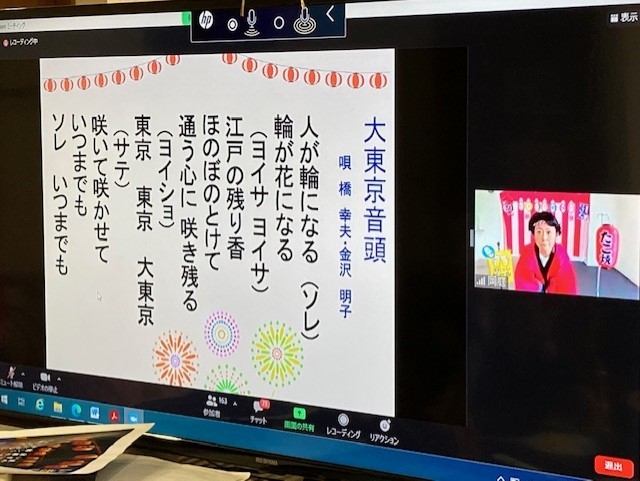 hp
レコーディング中
表示
大東京音頭
唄 橋 幸夫・金沢 明子
人が輪になる (ソレ)
輪が花になる
(ヨイサ ヨイサ)
江戸の残り香
ほのぼのとけて
通う心に 咲き残る
(ヨイショ)
東京 東京 大東京
(サテ)
咲いて咲かせて
いつまでも
ソレ いつまでも
たこ焼
ミュート解除
ビデオの停止
参加者
163
チャット
画面の共有
レコーディング
リアクション
退出